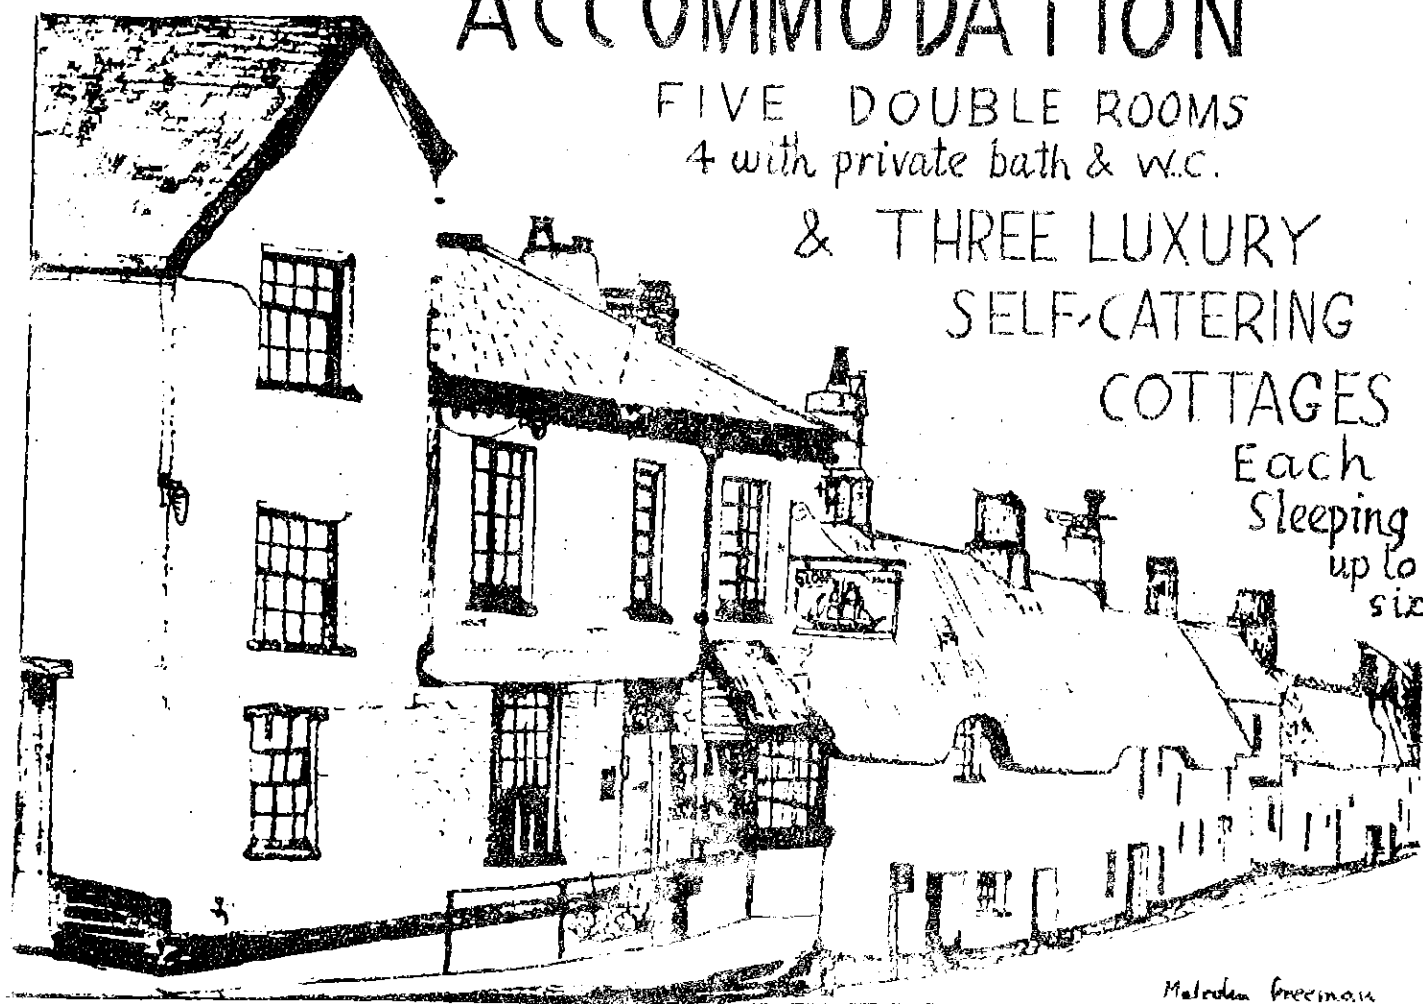 ACCOMMODATION
FIVE DOUBLE ROOMS
4 with private bath & W.C.
& THREE LUXURY
SELF-CATERING
COTTAGES
Each
Sleeping
up to
six
Malcolm